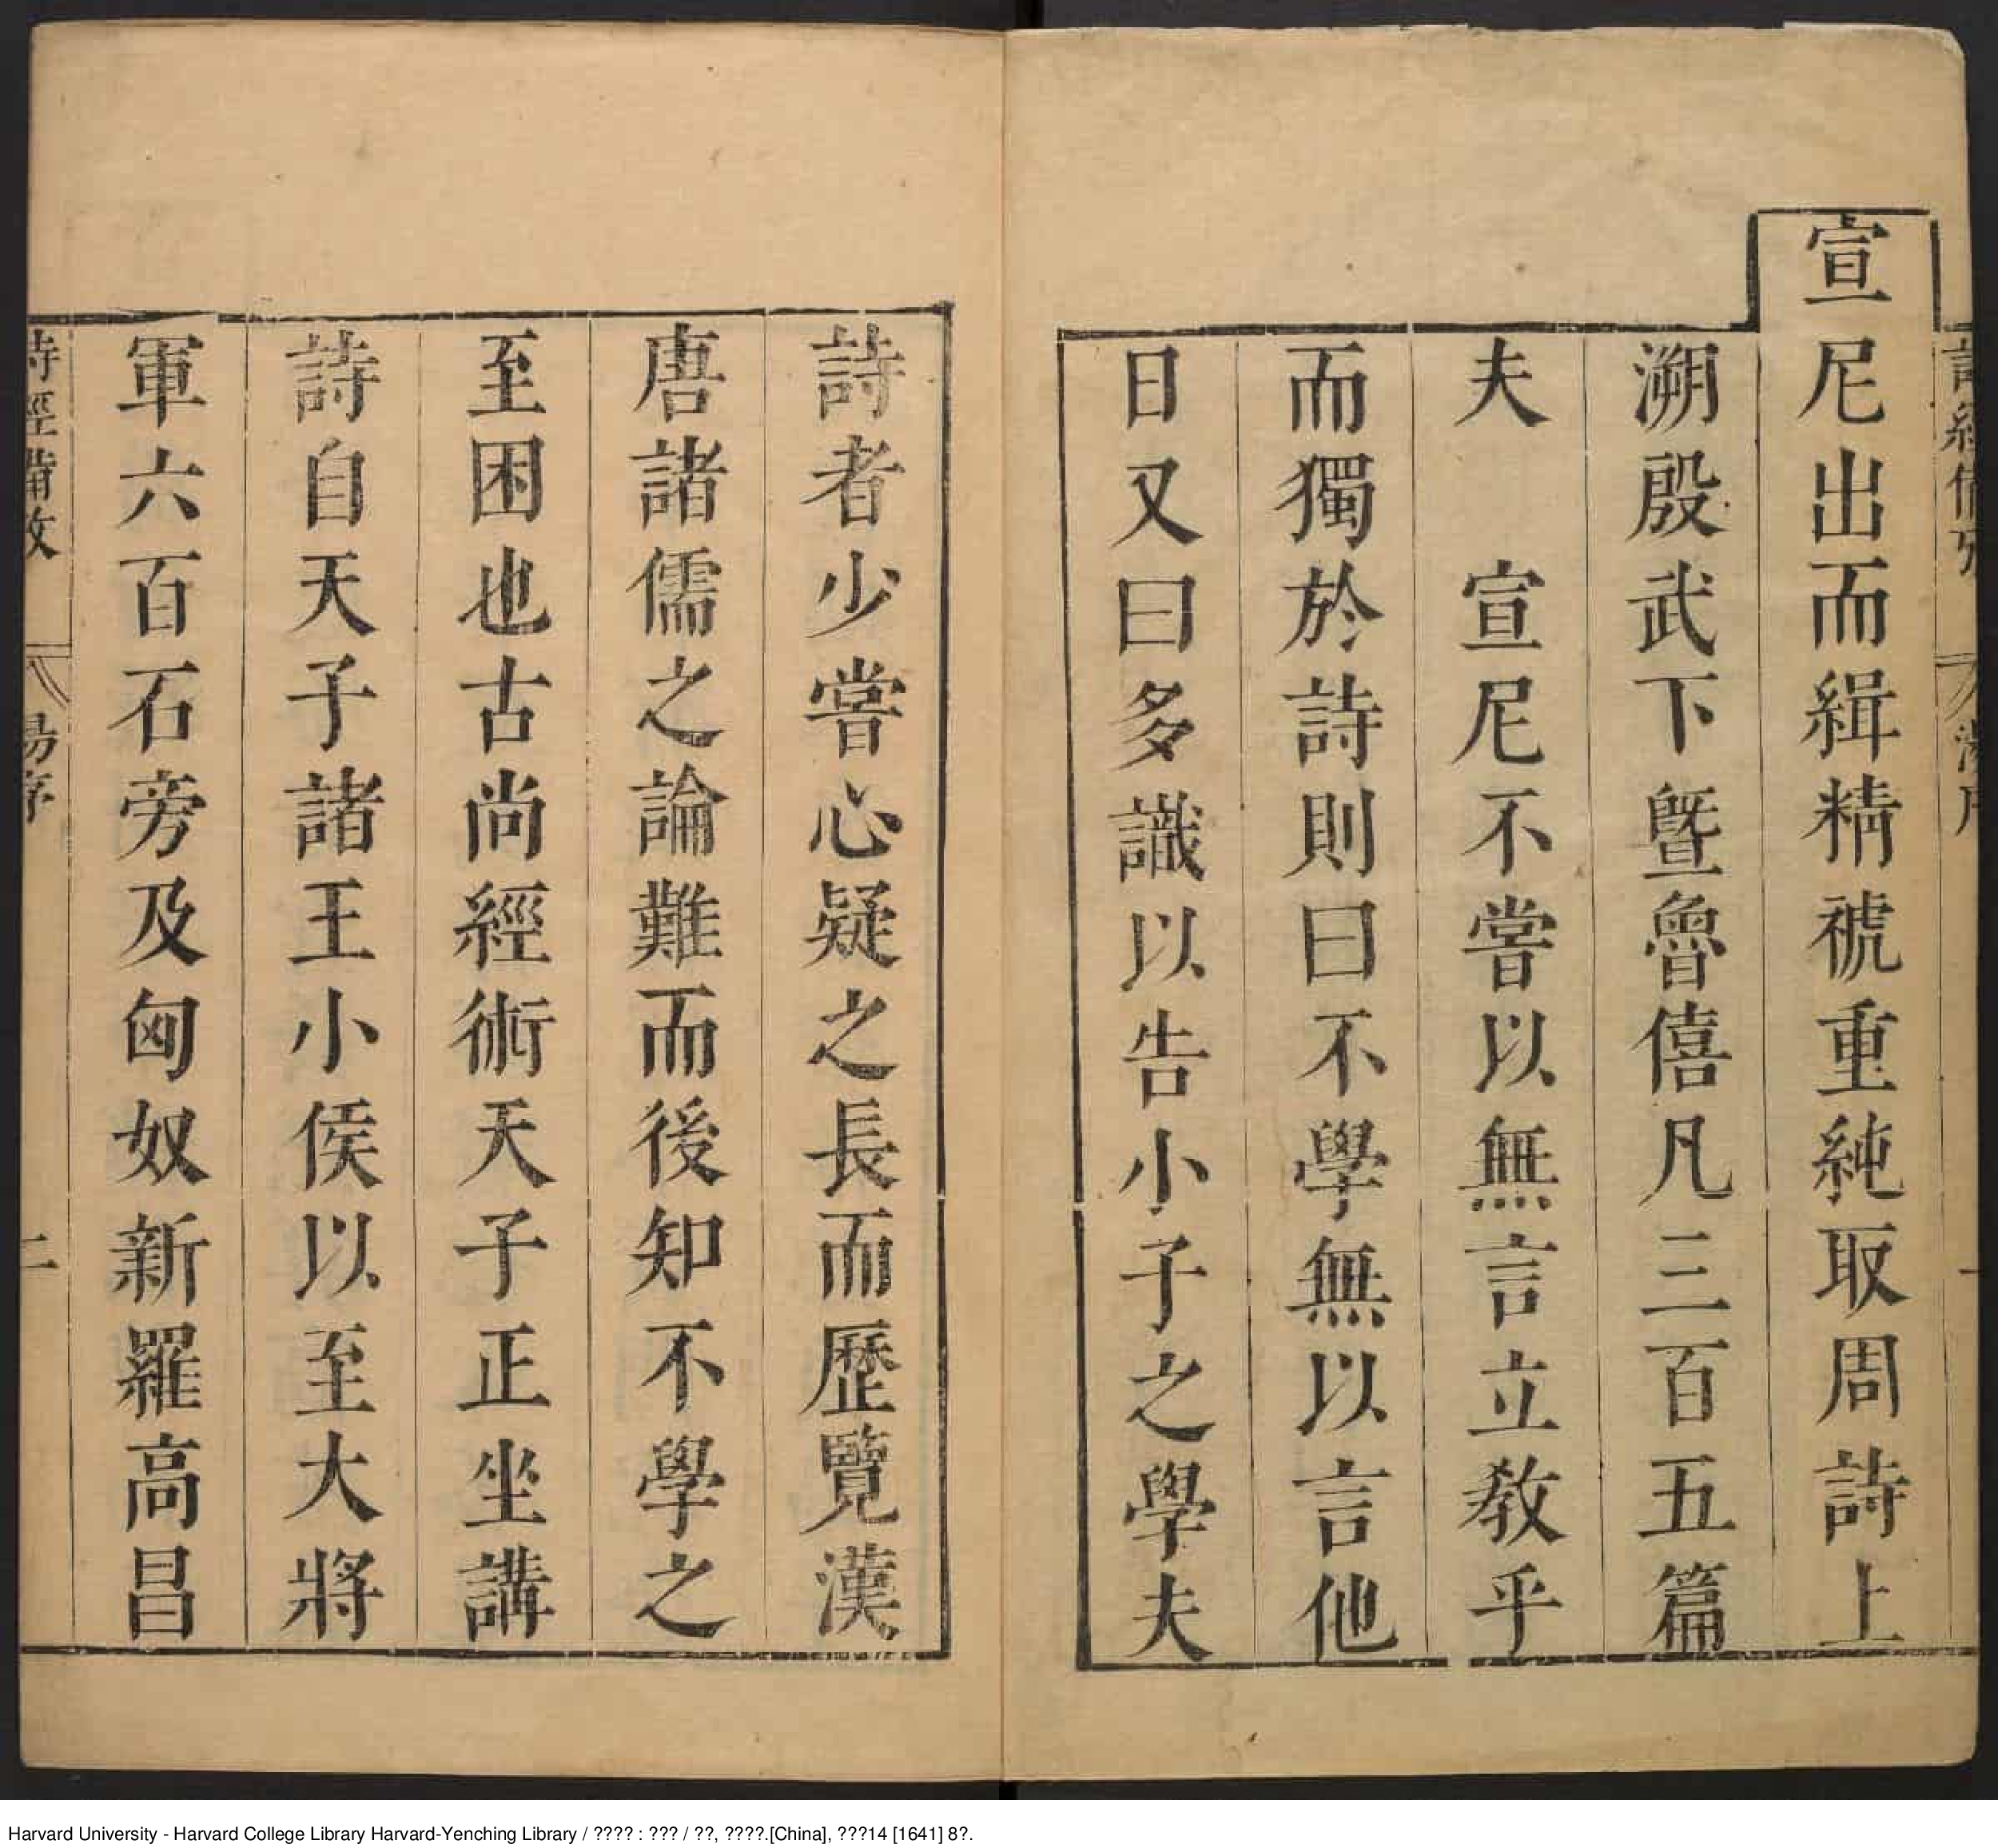 宣尼出而緝精褫重純取周詩上
溯殷武下曁魯僖凡三百五篇
夫　宣尼不嘗以無言立教乎
而獨於詩則曰不學無以言他
日又曰多識以告小子之學夫
詩者少嘗心疑之長而歷覽漢
唐諸儒之論難而後知不學之
至困也古尚經術天子正坐講
詩自天子諸王小侯以至大將
軍六百石旁及匈奴新羅高昌
詩經備攷
序
二
Harvard University - Harvard College Library Harvard-Yenching Library / ???? : ??? / ??, ????.[China], ???14 [1641] 8?.